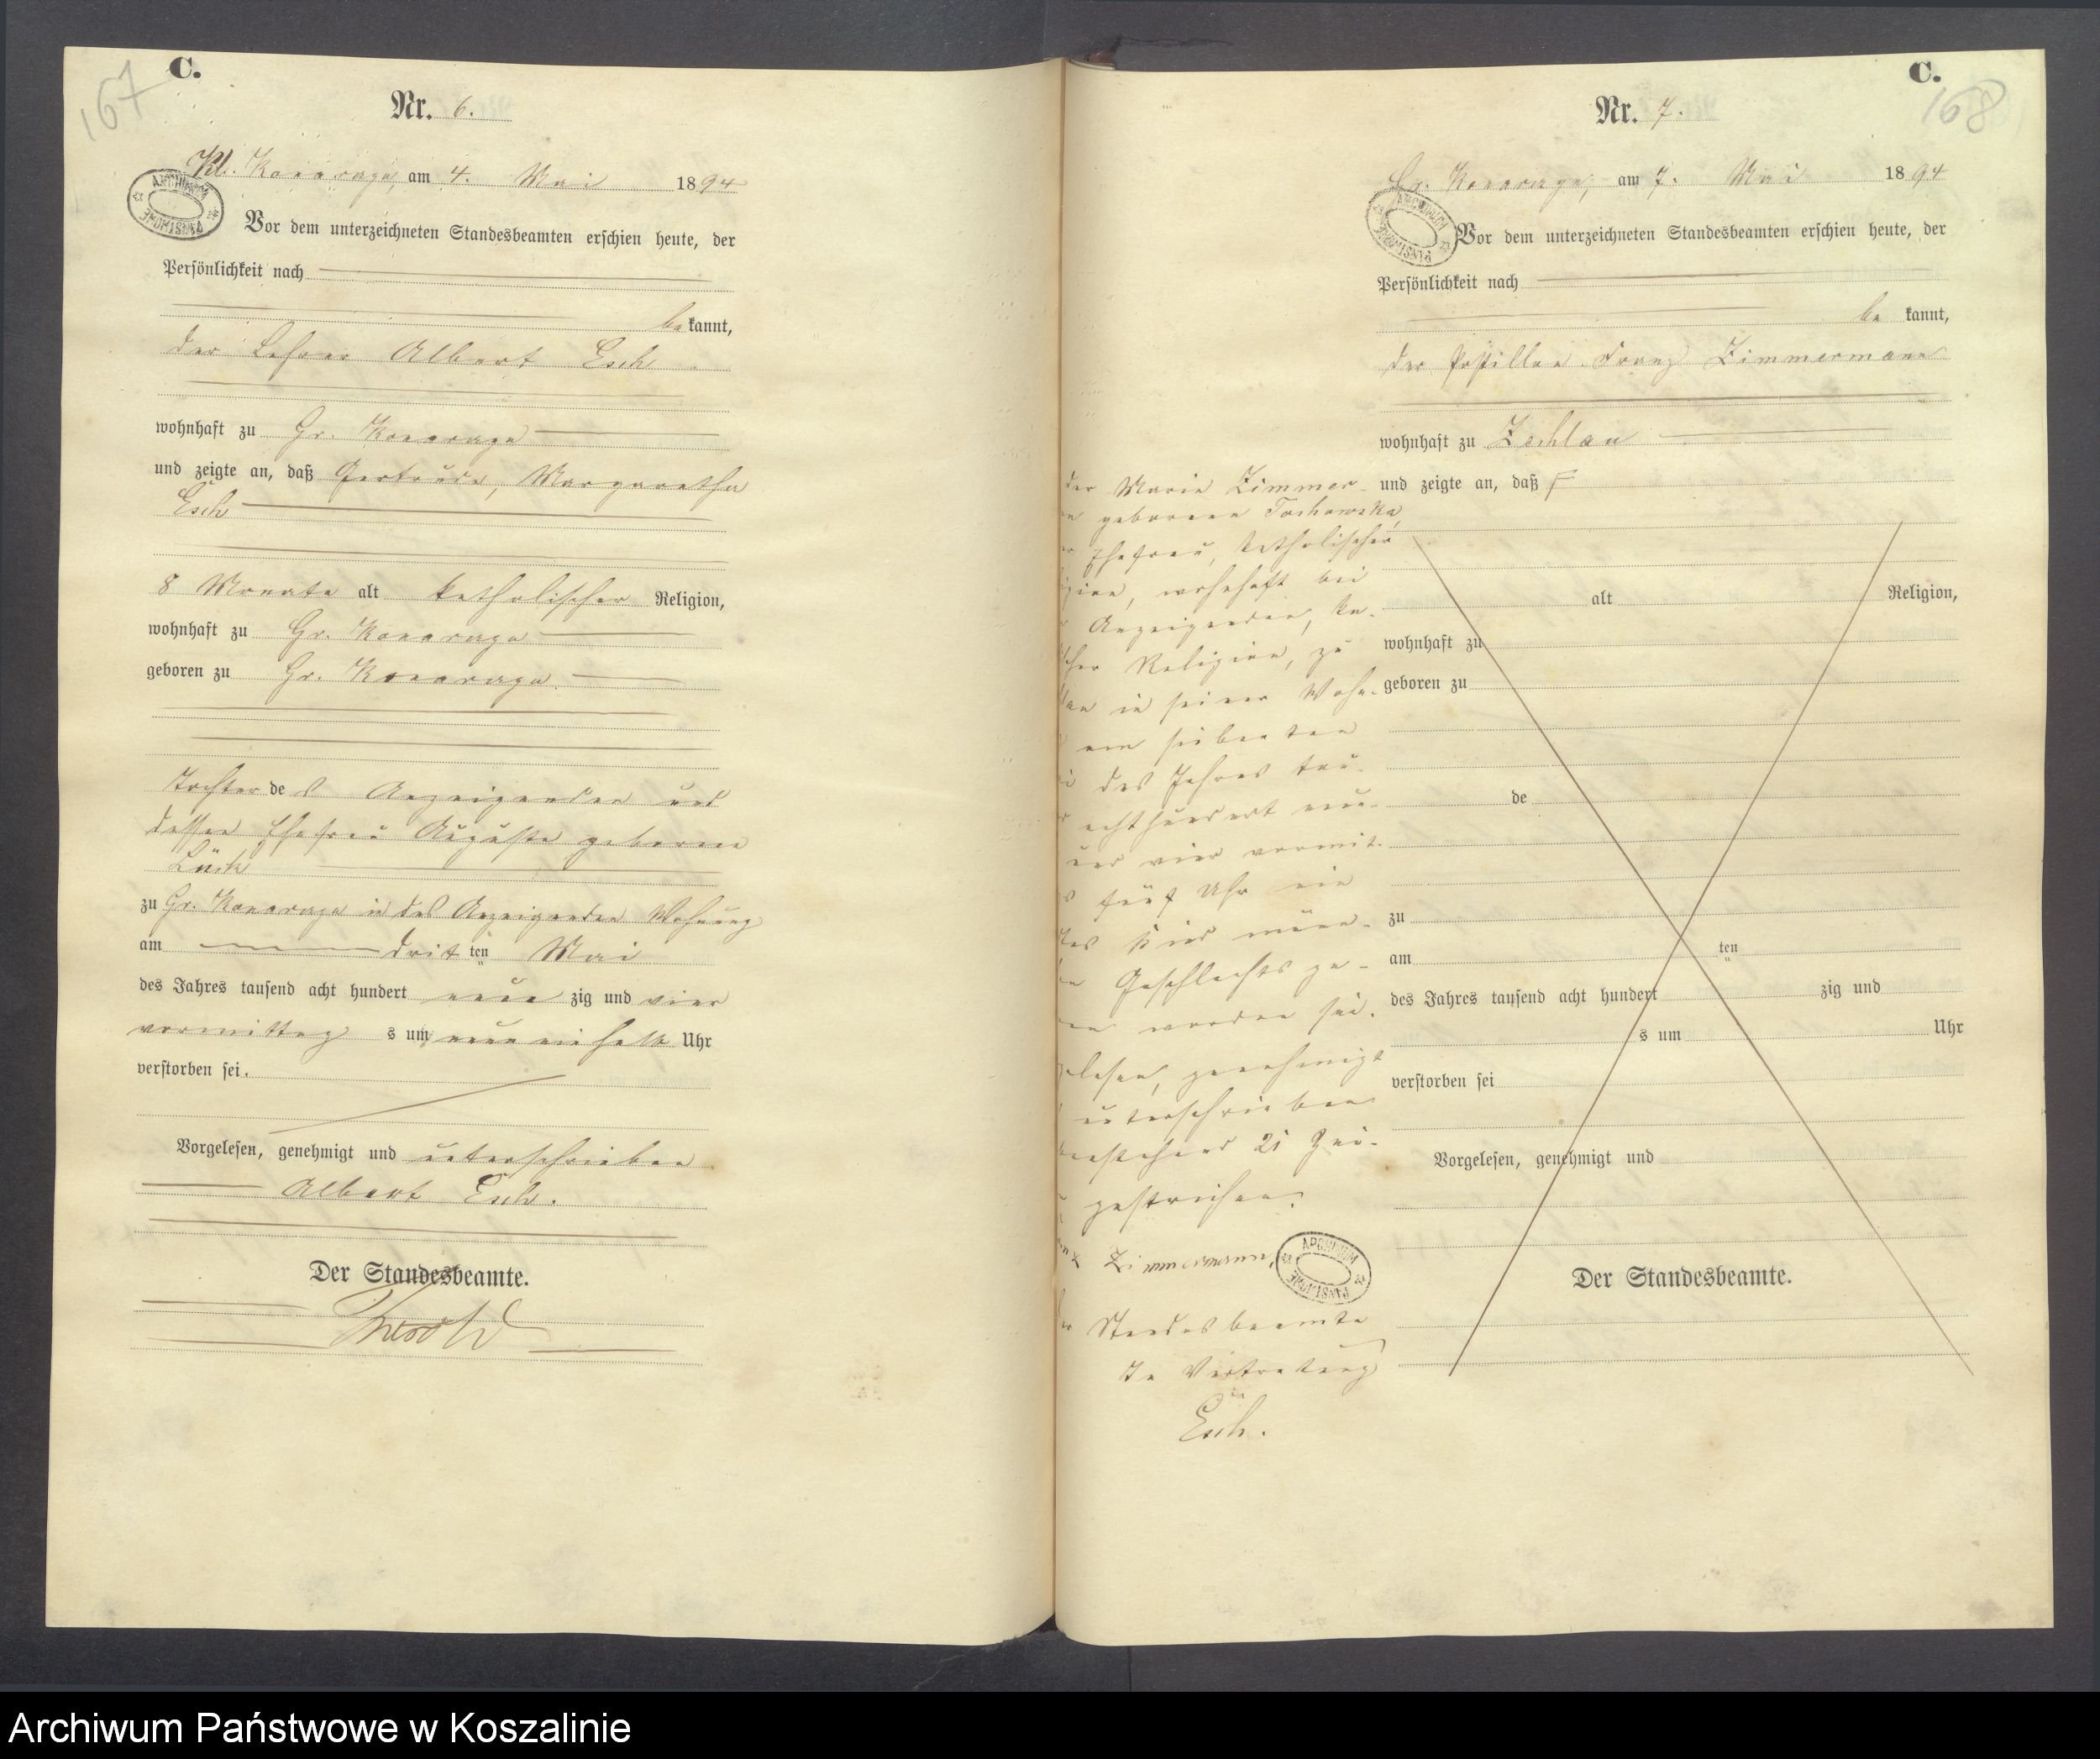 167
C.
Nr. 6.
Kl. Konarage, am 4. Mai 1894
ARCHIWUM PAŃSTWOWE
Vor dem unterzeichneten Standesbeamten erschien heute, der
Persönlichkeit nach
bekannt,
der Lehrer Albert Esch
wohnhaft zu Gr. Konarage
und zeigte an, daß Gertrude, Margaretha
Esch
8 Monate alt katholischer Religion,
wohnhaft zu Gr. Konarage
geboren zu Gr. Konarage
Tochter des Anzeigenden und
dessen Ehefrau Auguste geborene
Lück
zu Gr. Konarage in des Anzeigenden Wohnung
am dritten Mai
des Jahres tausend acht hundert neunzig und vier
vormittags um neun ein halb Uhr
verstorben sei.
Vorgelesen, genehmigt und unterschrieben
Albert Esch.
Der Standesbeamte.
C.
168
Nr. 7.
Gr. Konarage, am 7. Mai 1894
ARCHIWUM PAŃSTWOWE
Vor dem unterzeichneten Standesbeamten erschien heute, der
Persönlichkeit nach
bekannt,
der Postillon Franz Zimmermann
wohnhaft zu Zechlau
und zeigte an, daß
alt Religion,
wohnhaft zu
geboren zu
de
zu
am ten
des Jahres tausend acht hundert zig und
s um Uhr
verstorben sei
Vorgelesen, genehmigt und
Der Standesbeamte.
der Marie Zimmer-
geborenen Tochowska,
Ehefrau, katholischer
wohnhaft bei
Anzeigenden, ka-
Religion, zu
in seiner Wohn-
am siebenten
des Jahres tau-
achthundert neun-
und vier vormit-
fünf Uhr ein
Kind männ-
Geschlechts ge-
worden sei.
genehmigt
unterschrieben
21
gestrichen.
Zimmermann,
ARCHIWUM PAŃSTWOWE
Standesbeamte
In Vertretung
Esch.
Archiwum Państwowe w Koszalinie